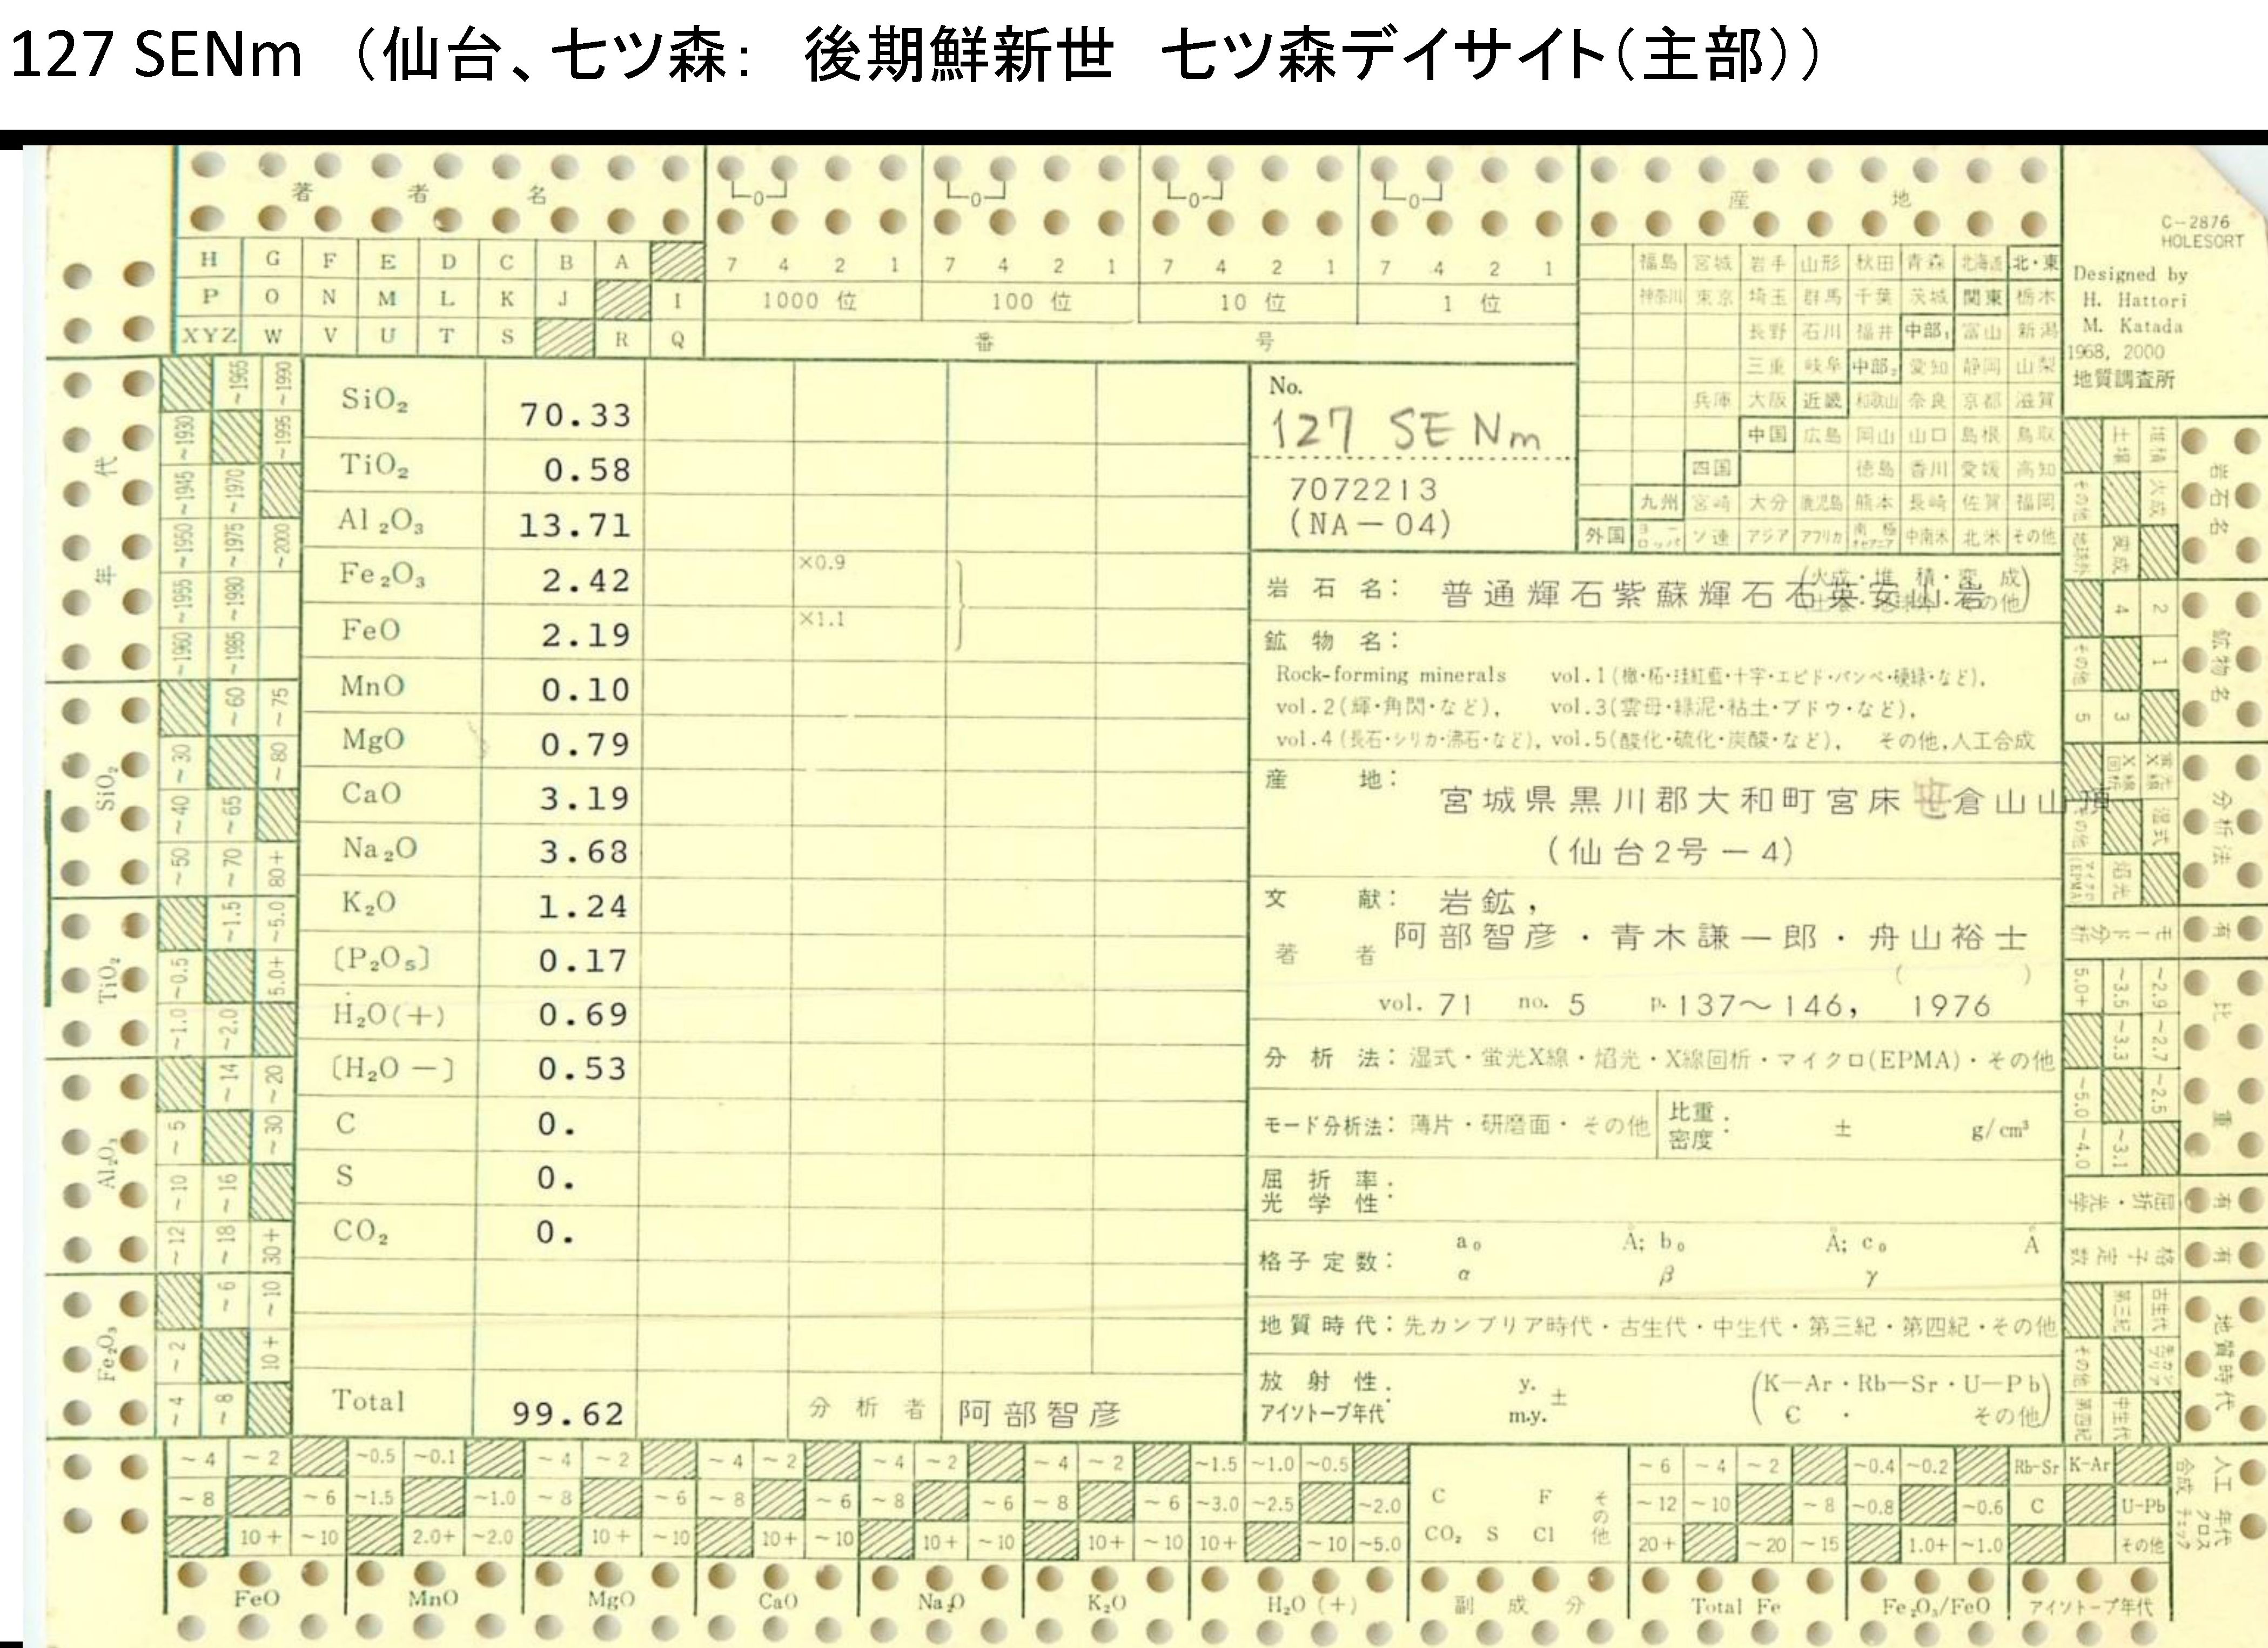 127 SENm （仙台、七ツ森： 後期鮮新世 七ツ森デイサイト（主部））
著 者 名
0 0 0 0
産 地
C-2876
HOLESORT
Designed by
H. Hattori
M. Katada
1968, 2000
地質調査所
H G F E D C B A
P O N M L K J I
XYZ W V U T S R Q
7 4 2 1 7 4 2 1 7 4 2 1 7 4 2 1
1000 位 100 位 10 位 1 位
番 号
福島 宮城 岩手 山形 秋田 青森 北海道 北・東
神奈川 東京 埼玉 群馬 千葉 茨城 関東 栃木
長野 石川 福井 中部₁ 富山 新潟
三重 岐阜 中部₂ 愛知 静岡 山梨
兵庫 大阪 近畿 和歌山 奈良 京都 滋賀
中国 広島 岡山 山口 島根 鳥取
四国 徳島 香川 愛媛 高知
九州 宮崎 大分 鹿児島 熊本 長崎 佐賀 福岡
外国 ヨーロッパ ソ連 アジア アフリカ 中南米 北米 その他
年 代
~1965 ~1990
~1930 ~1995
~1945 ~1970
~1950 ~1975 ~2000
~1955 ~1980
~1960 ~1985
SiO₂
~60 ~75
~30 ~80
~40 ~65
~50 ~70 80+
TiO₂
~1.5 ~5.0
~0.5 5.0+
~1.0 ~2.0
Al₂O₃
~14 ~20
~5 ~30
~10 ~16
~12 ~18 30+
Fe₂O₃
~6 ~10
~2 10+
~4 ~8
SiO₂ 70.33
TiO₂ 0.58
Al₂O₃ 13.71
Fe₂O₃ 2.42 ×0.9
FeO 2.19 ×1.1
MnO 0.10
MgO 0.79
CaO 3.19
Na₂O 3.68
K₂O 1.24
〔P₂O₅〕 0.17
H₂O(+) 0.69
〔H₂O −〕 0.53
C 0.
S 0.
CO₂ 0.
Total 99.62 分 析 者 阿部智彦
No.
127 SENm
7072213
(NA－04)
岩 石 名： 普通輝石紫蘇輝石石英安山岩
(火成・堆 積・変 成
その他)
鉱 物 名：
Rock-forming minerals vol.1(橄・柘・珪紅藍・十字・エピド・パンペ・硬緑・など),
vol.2(輝・角閃・など), vol.3(雲母・緑泥・粘土・ブドウ・など),
vol.4(長石・シリカ・沸石・など), vol.5(酸化・硫化・炭酸・など), その他,人工合成
産 地： 宮城県黒川郡大和町宮床笹倉山山頂
(仙台2号－4)
文 献： 岩鉱，
著 者 阿部智彦・青木謙一郎・舟山裕士
( )
vol. 71 no. 5 p. 137～146, 1976
分 析 法：湿式・蛍光X線・焰光・X線回析・マイクロ(EPMA)・その他
モード分析法：薄片・研磨面・その他 比重・密度： ± g/cm³
屈 折 率・
光 学 性：
格子定数： a₀ Å; b₀ Å; c₀ Å
α β γ
地質時代：先カンブリア時代・古生代・中生代・第三紀・第四紀・その他
放 射 性・ y. ± (K－Ar・Rb－Sr・U－Pb
アイソトープ年代： m.y. C ・ その他)
岩石名
土壌 堆積
その他 火成
地球外 変成
鉱物名
4 2
その他 1
5 3
分析法
X線回析 蛍光X線
その他 湿式
マイクロ(EPMA) 焰光
モード分析 有
比 重
5.0+ ~3.5 ~2.9
~3.3 ~2.7
~5.0 ~2.5
~4.0 ~3.1
屈折・光学 有
格子定数 有
地質時代
第三紀 古生代
その他 先カンブリア
第四紀 中生代
~4 ~2 ~0.5 ~0.1 ~4 ~2 ~4 ~2 ~4 ~2 ~4 ~2 ~1.5 ~1.0 ~0.5 ~6 ~4 ~2 ~0.4 ~0.2 Rb-Sr K-Ar
~8 ~6 ~1.5 ~1.0 ~8 ~6 ~8 ~6 ~8 ~6 ~8 ~6 ~3.0 ~2.5 ~2.0 C F その他 ~12 ~10 ~8 ~0.8 ~0.6 C U-Pb
10+ ~10 2.0+ ~2.0 10+ ~10 10+ ~10 10+ ~10 10+ ~10 10+ ~10 ~5.0 CO₂ S Cl 20+ ~20 ~15 1.0+ ~1.0 その他
人工合成 年代クロスチェック
FeO MnO MgO CaO Na₂O K₂O H₂O(+) 副成分 Total Fe Fe₂O₃/FeO アイソトープ年代